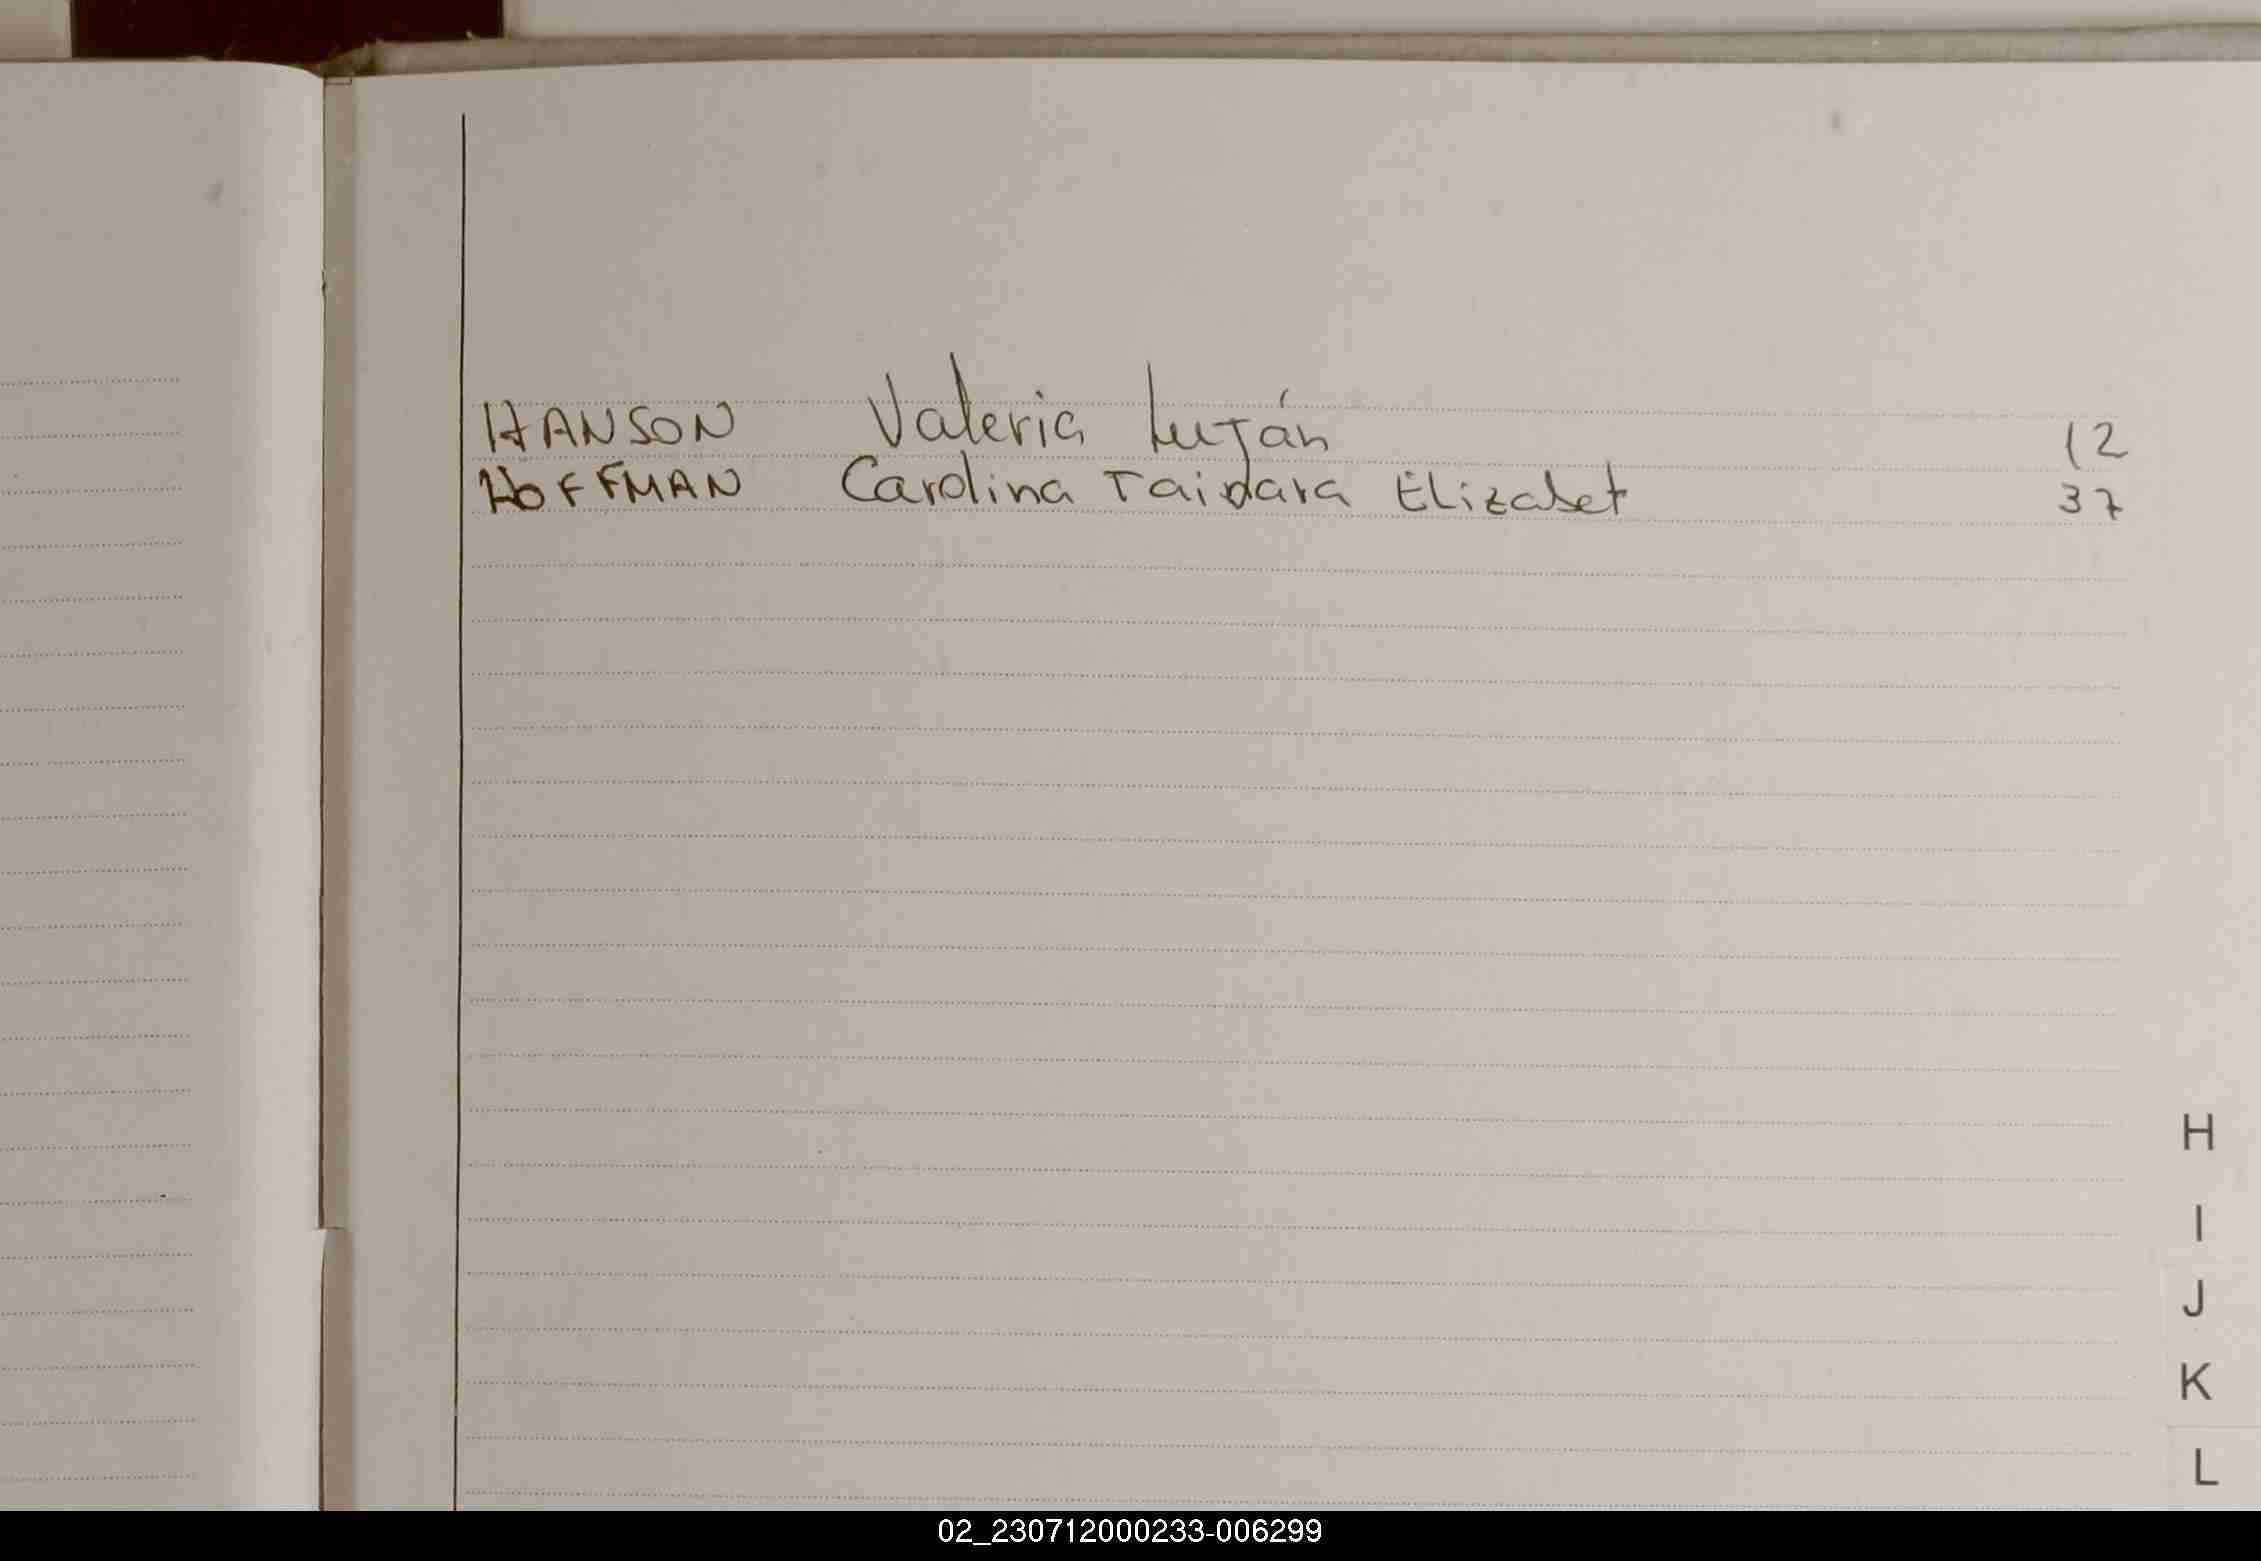 HANSON Valeria Luján 12
HOFFMAN Carolina Taidara Elizabet 37
H
I
J
K
L
02_230712000233-006299